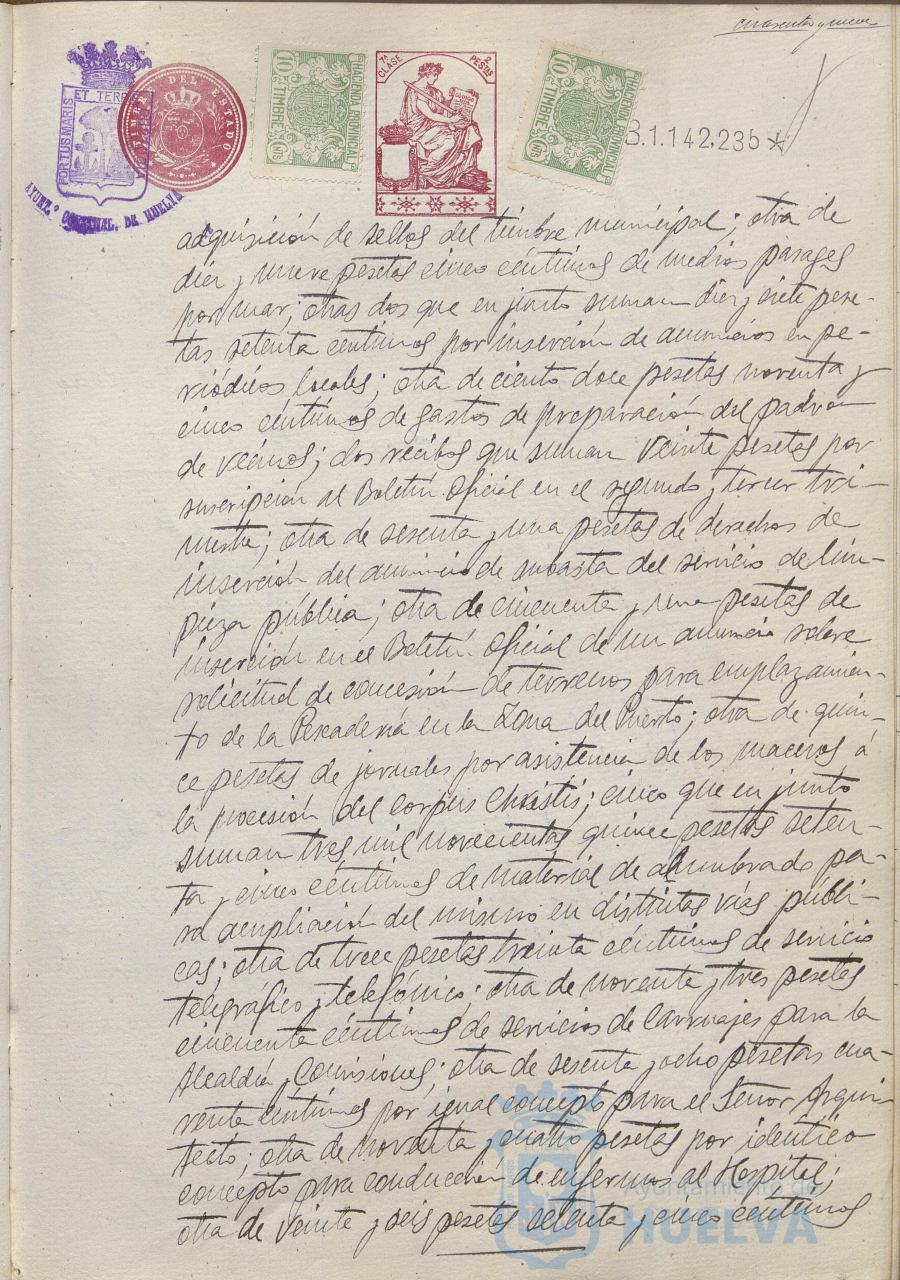 cuarenta y nueve
PORTUS MARIS ET TERRÆ
AYUNT.º CONSTITUCIONAL DE HUELVA
TIMBRE DEL ESTADO
HACENDA PROVINCIAL
TIMBRE 10 CTS
7ª CLASE 2 PESETAS
CODIGO
HACENDA PROVINCIAL
TIMBRE 10 CTS
B.1.142.235*
adquisición de sellos del timbre municipal; otra de
diez y nueve pesetas cinco céntimos de medios pasages
por mar; otras dos que en junto suman diez y siete pese-
tas setenta céntimos por inserción de anuncios en pe-
riódicos locales; otra de ciento doce pesetas noventa y
cinco céntimos de gastos de preparación del padrón
de vecinos; dos recibos que suman veinte pesetas por
suscripción al Boletín Oficial en el segundo y tercer tri-
mestre; otra de sesenta y una pesetas de derechos de
inserción del anuncio de subasta del servicio de lim-
pieza pública; otra de cincuenta y una pesetas de
inserción en el Boletín Oficial de un anuncio sobre
solicitud de concesión de terrenos para emplazamien-
to de la Pescadería en la Zona del Puerto; otra de quin-
ce pesetas de jornales por asistencia de los maceros á
la procesión del Corpus Christis; cinco que en junto
suman tres mil novecientas quince pesetas seten-
ta y cinco céntimos de material de alumbrado pa-
ra ampliación del mismo en distintas vías públi-
cas; otra de trece pesetas treinta céntimos de servicio
telegráfico y telefónico; otra de noventa y tres pesetas
cincuenta céntimos de servicios de carruajes para la
Alcaldía y Comisiones; otra de sesenta y ocho pesetas cua-
renta céntimos por igual concepto para el Señor Arqui-
tecto; otra de noventa y cuatro pesetas por idéntico
concepto para conducción de enfermos al Hospital;
otra de veinte y seis pesetas setenta y cinco céntimos
Ayuntamiento de
HUELVA